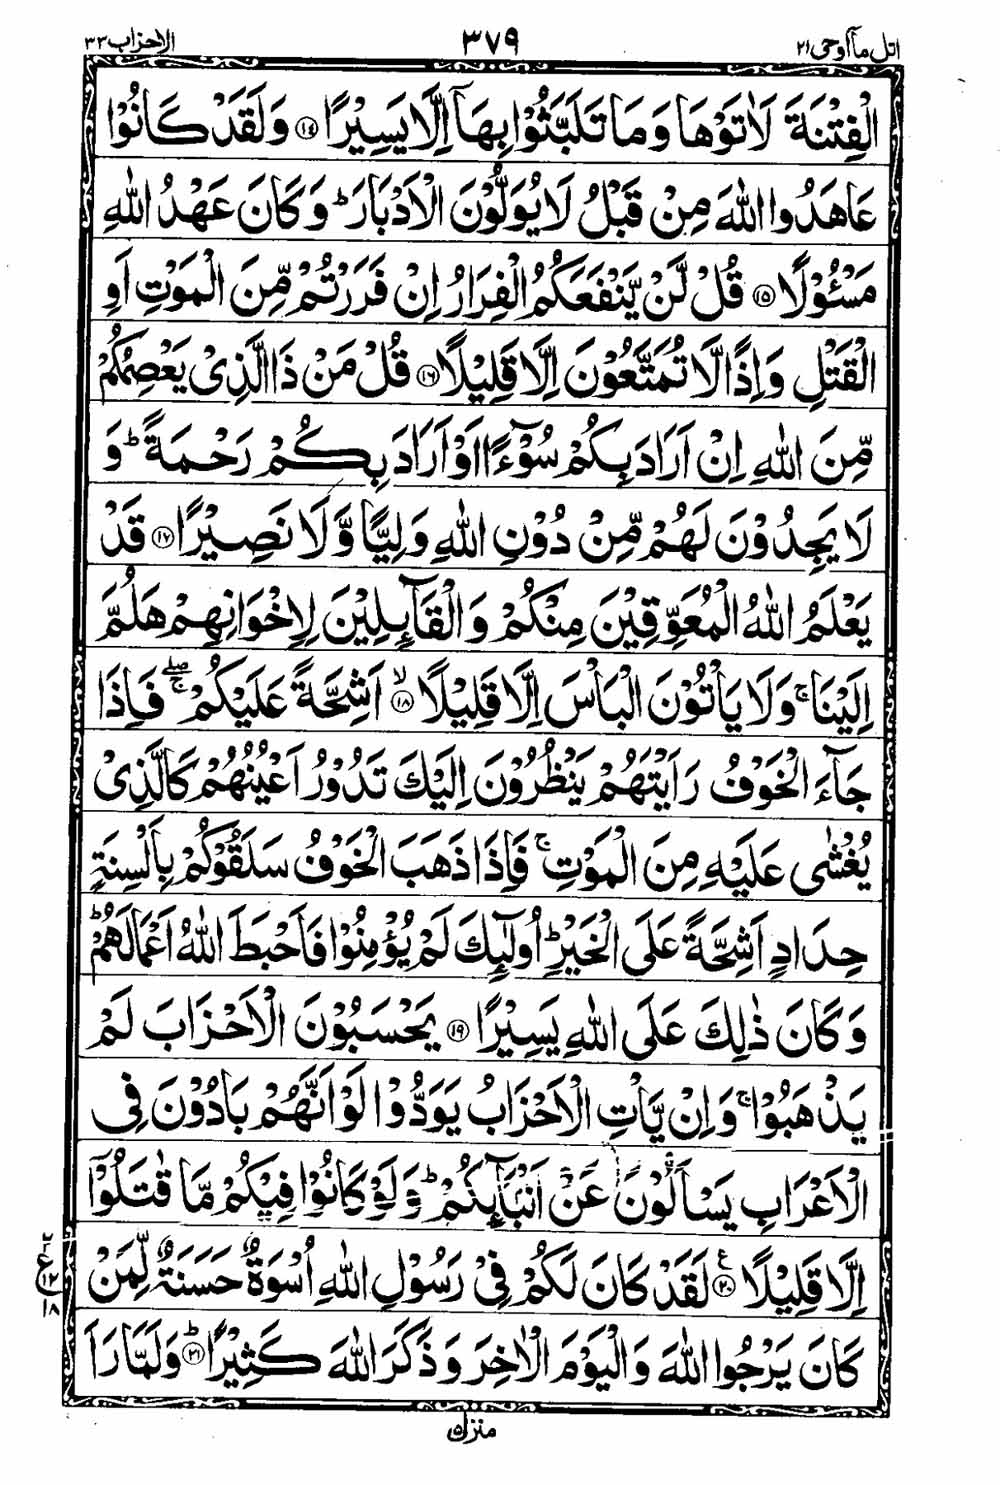 اتل ماۤ اوحی ۲۱
۳۷۹
الاحزاب ۳۳
الْفِتْنَةَ لَاٰتَوْهَا وَمَا تَلَبَّثُوْا بِهَاۤ اِلَّا يَسِيْرًا ۝۱۴ وَلَقَدْ كَانُوْا
عَاهَدُوا اللّٰهَ مِنْ قَبْلُ لَا يُوَلُّوْنَ الْاَدْبَارَ ؕ وَكَانَ عَهْدُ اللّٰهِ
مَسْـُٔوْلًا ۝۱۵ قُلْ لَّنْ يَّنْفَعَكُمُ الْفِرَارُ اِنْ فَرَرْتُمْ مِّنَ الْمَوْتِ اَوِ
الْقَتْلِ وَاِذًا لَّا تُمَتَّعُوْنَ اِلَّا قَلِيْلًا ۝۱۶ قُلْ مَنْ ذَا الَّذِىْ يَعْصِمُكُمْ
مِّنَ اللّٰهِ اِنْ اَرَادَ بِكُمْ سُوْٓءًا اَوْ اَرَادَ بِكُمْ رَحْمَةً ؕ وَ
لَا يَجِدُوْنَ لَهُمْ مِّنْ دُوْنِ اللّٰهِ وَلِيًّا وَّلَا نَصِيْرًا ۝۱۷ قَدْ
يَعْلَمُ اللّٰهُ الْمُعَوِّقِيْنَ مِنْكُمْ وَالْقَآئِلِيْنَ لِاِخْوَانِهِمْ هَلُمَّ
اِلَيْنَا ۚ وَلَا يَاْتُوْنَ الْبَاْسَ اِلَّا قَلِيْلًا ۙ۝۱۸ اَشِحَّةً عَلَيْكُمْ ۚۖ فَاِذَا
جَآءَ الْخَوْفُ رَاَيْتَهُمْ يَنْظُرُوْنَ اِلَيْكَ تَدُوْرُ اَعْيُنُهُمْ كَالَّذِىْ
يُغْشٰى عَلَيْهِ مِنَ الْمَوْتِ ۚ فَاِذَا ذَهَبَ الْخَوْفُ سَلَقُوْكُمْ بِاَلْسِنَةٍ
حِدَادٍ اَشِحَّةً عَلَى الْخَيْرِ ؕ اُولٰٓئِكَ لَمْ يُؤْمِنُوْا فَاَحْبَطَ اللّٰهُ اَعْمَالَهُمْ ؕ
وَكَانَ ذٰلِكَ عَلَى اللّٰهِ يَسِيْرًا ۝۱۹ يَحْسَبُوْنَ الْاَحْزَابَ لَمْ
يَذْهَبُوْا ۚ وَاِنْ يَّاْتِ الْاَحْزَابُ يَوَدُّوْا لَوْ اَنَّهُمْ بَادُوْنَ فِى
الْاَعْرَابِ يَسْاَلُوْنَ عَنْ اَنْۢبَآئِكُمْ ؕ وَلَوْ كَانُوْا فِيْكُمْ مَّا قٰتَلُوْۤا
اِلَّا قَلِيْلًا ۝۲۰ ع لَقَدْ كَانَ لَكُمْ فِىْ رَسُوْلِ اللّٰهِ اُسْوَةٌ حَسَنَةٌ لِّمَنْ
كَانَ يَرْجُوا اللّٰهَ وَالْيَوْمَ الْاٰخِرَ وَذَكَرَ اللّٰهَ كَثِيْرًا ؕ۝۲۱ وَلَمَّا رَاَ
ع
۱۲
۱۸
منزل